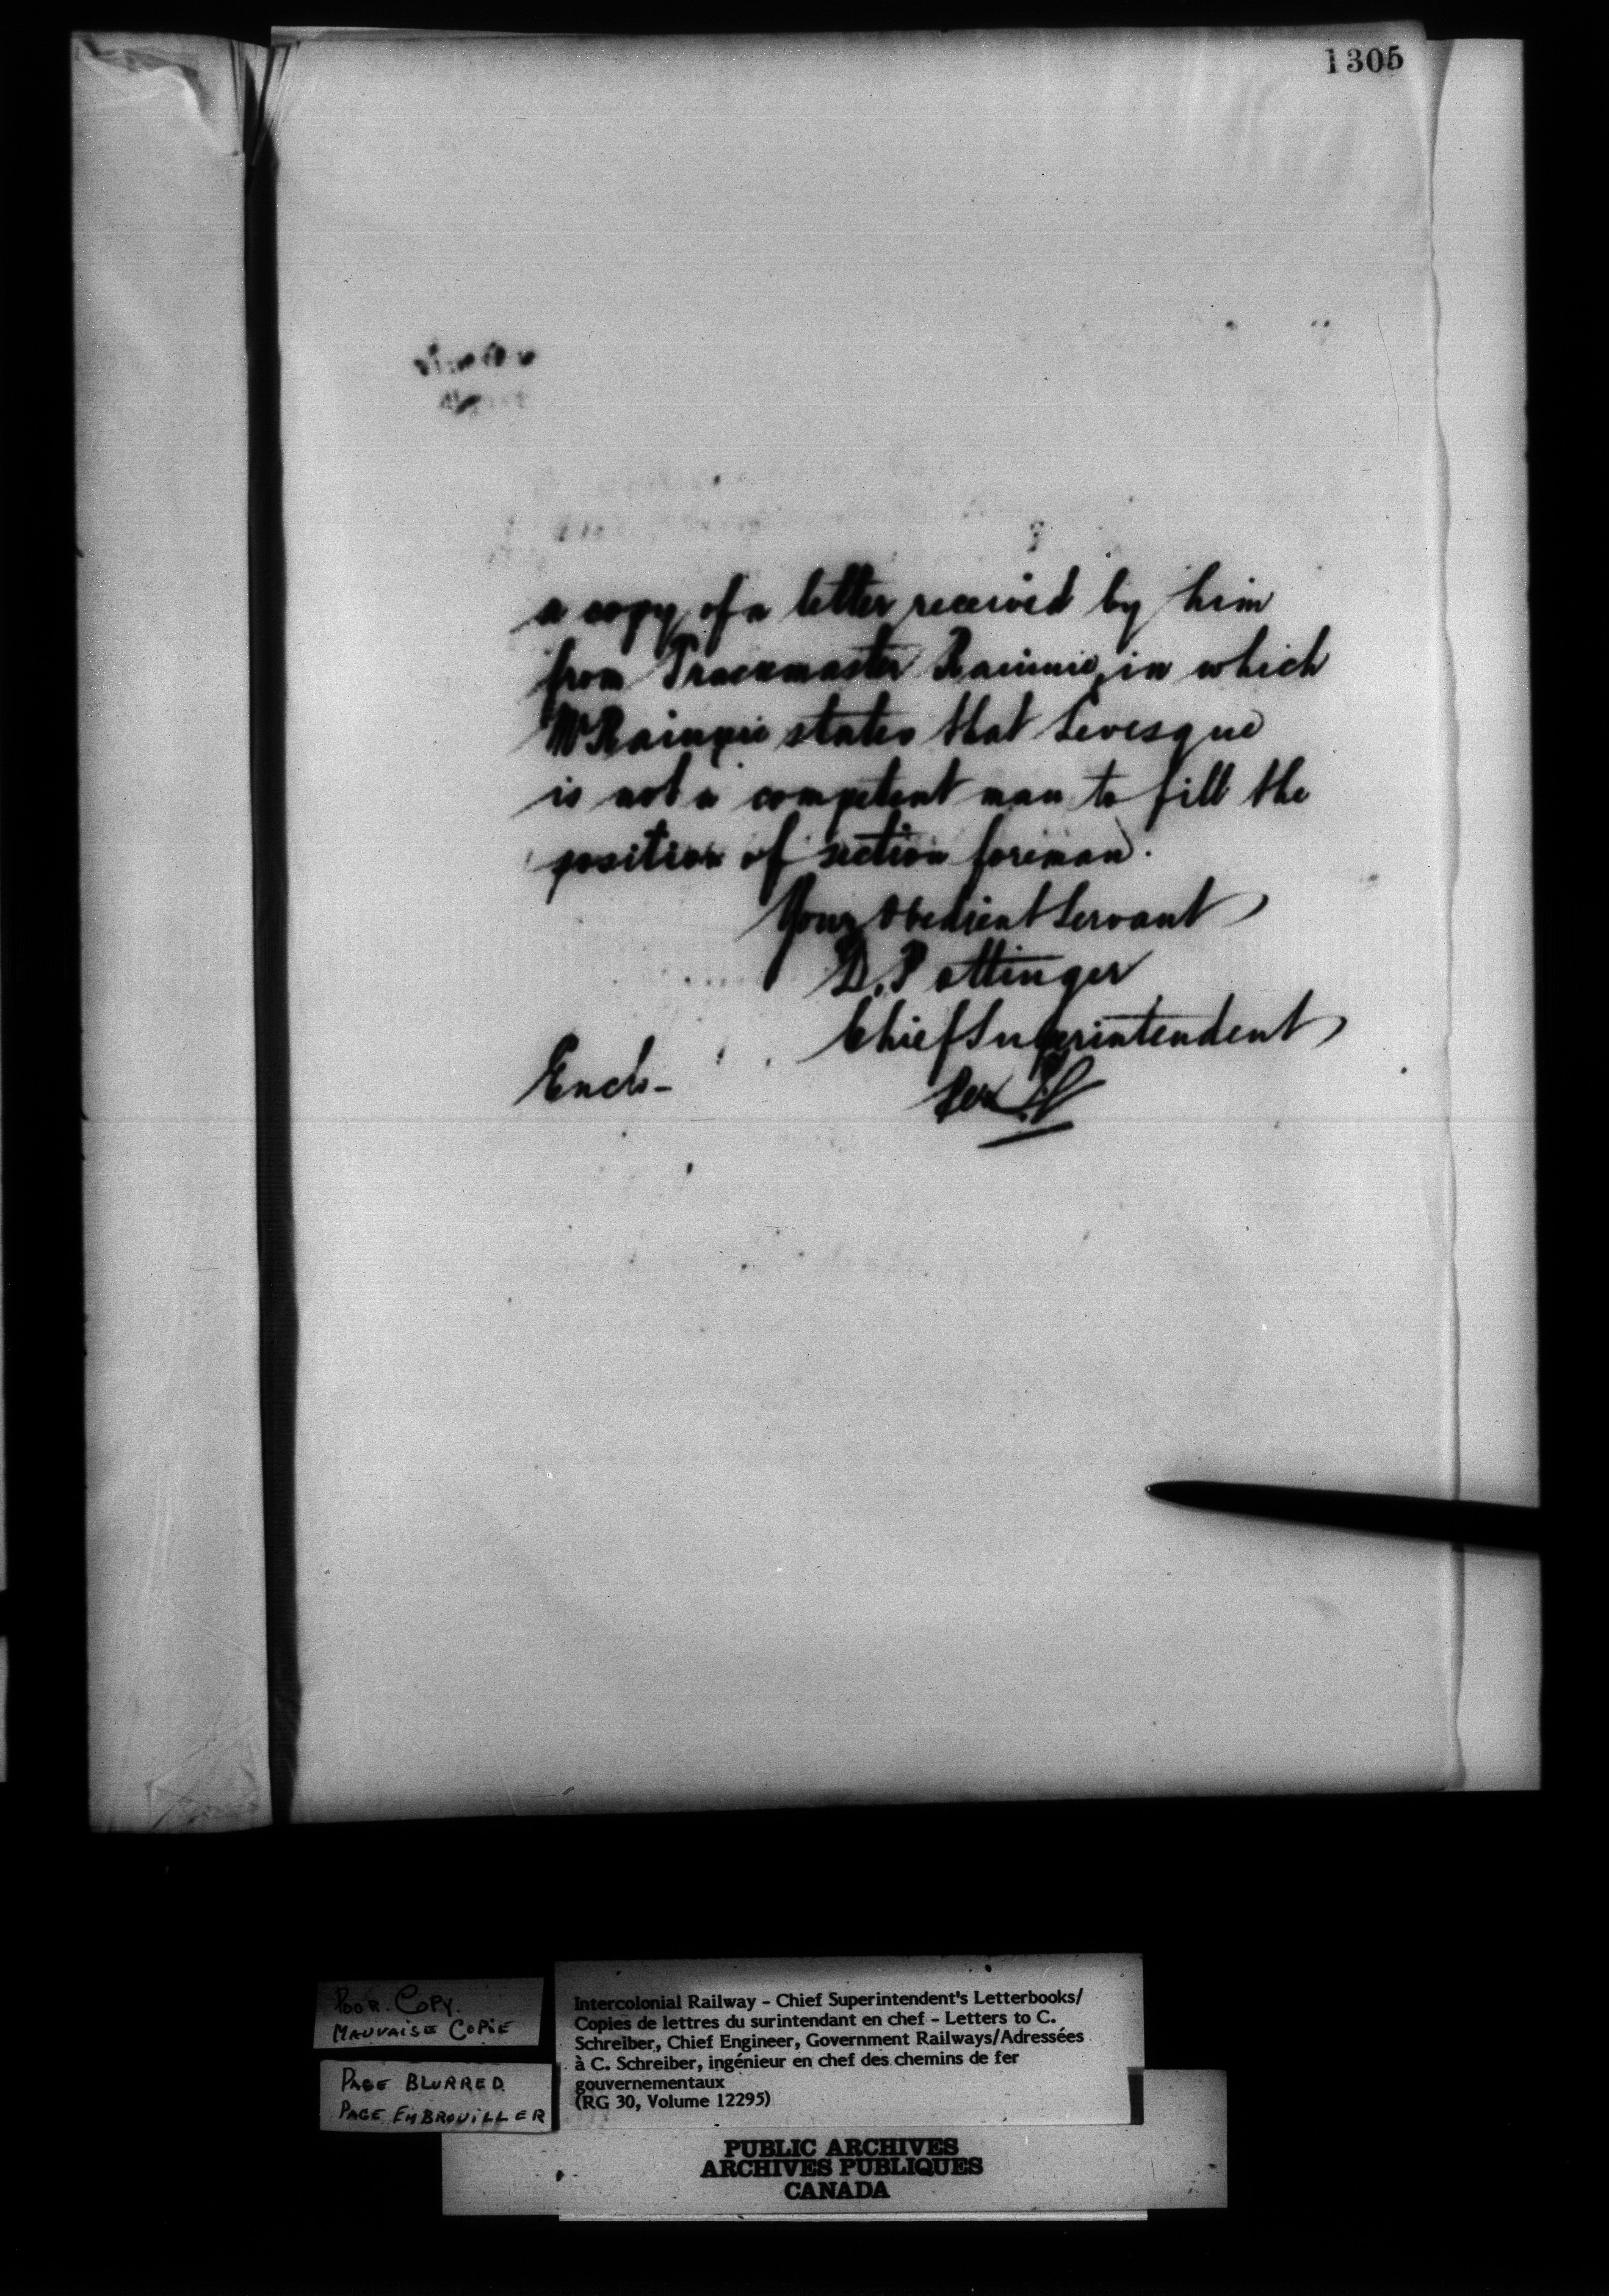 1305
a copy of a letter received by him
from Trackmaster Rainnie, in which
Mr Rainnie states that Levesque
is not a competent man to fill the
position of section foreman.
Your Obedient Servant
D. Pottinger
Chief Superintendent
Encls-
Per
POOR. COPY.
MAUVAISE COPIE
PAGE BLURRED
PAGE EMBROUILLER
Intercolonial Railway - Chief Superintendent's Letterbooks/
Copies de lettres du surintendant en chef - Letters to C.
Schreiber, Chief Engineer, Government Railways/Adressées
à C. Schreiber, ingénieur en chef des chemins de fer
gouvernementaux
(RG 30, Volume 12295)
PUBLIC ARCHIVES
ARCHIVES PUBLIQUES
CANADA